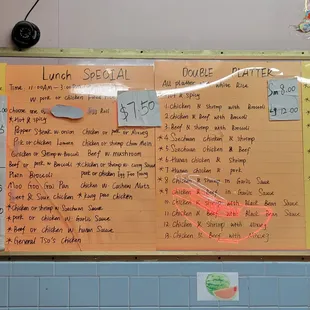 Lunch SPECIAL
TIME. 11:00AM -
w pork
$7.50
choose one
* Hot & spicy
Pepper Steak w onion chicken or pork w
Pork or chicken Lo mein chicken or shrimp chow Mein
chicken or Shrimp w Broccoli Beef w mushroom
Beef or pork w Broccoli * chicken or shrimp w curry sauce
Plain Broccoli pork or chicken Egg Foo Young
Moo Goo Gai Pan chicken w Cashew Nuts
Sweet & Sour chicken * Kung pao chicken
* Chicken or Shrimp w Szechuan Sauce
* pork or chicken w Garlic Sauce
* Beef or chicken w Hunan Sauce
* General Tso's chicken
DOUBLE PLATTER
All platter w white Rice
* Hot & spicy
Sm 8.00
12.00
1. chicken & Shrimp with Broccoli
2. chicken & Beef with Broccoli
3. Beef & shrimp with Broccoli
4. Szechuan chicken & shrimp
5. Szechuan chicken & Beef
6. Hunan chicken & shrimp
7. Hunan chicken & Beef
8. chicken & shrimp in Garlic Sauce
9. chicken & Beef in Garlic Sauce
10. chicken & shrimp with Black Bean Sauce
11. chicken & Beef with Black Bean Sauce
12. chicken & shrimp with
13. Chicken & Beef with